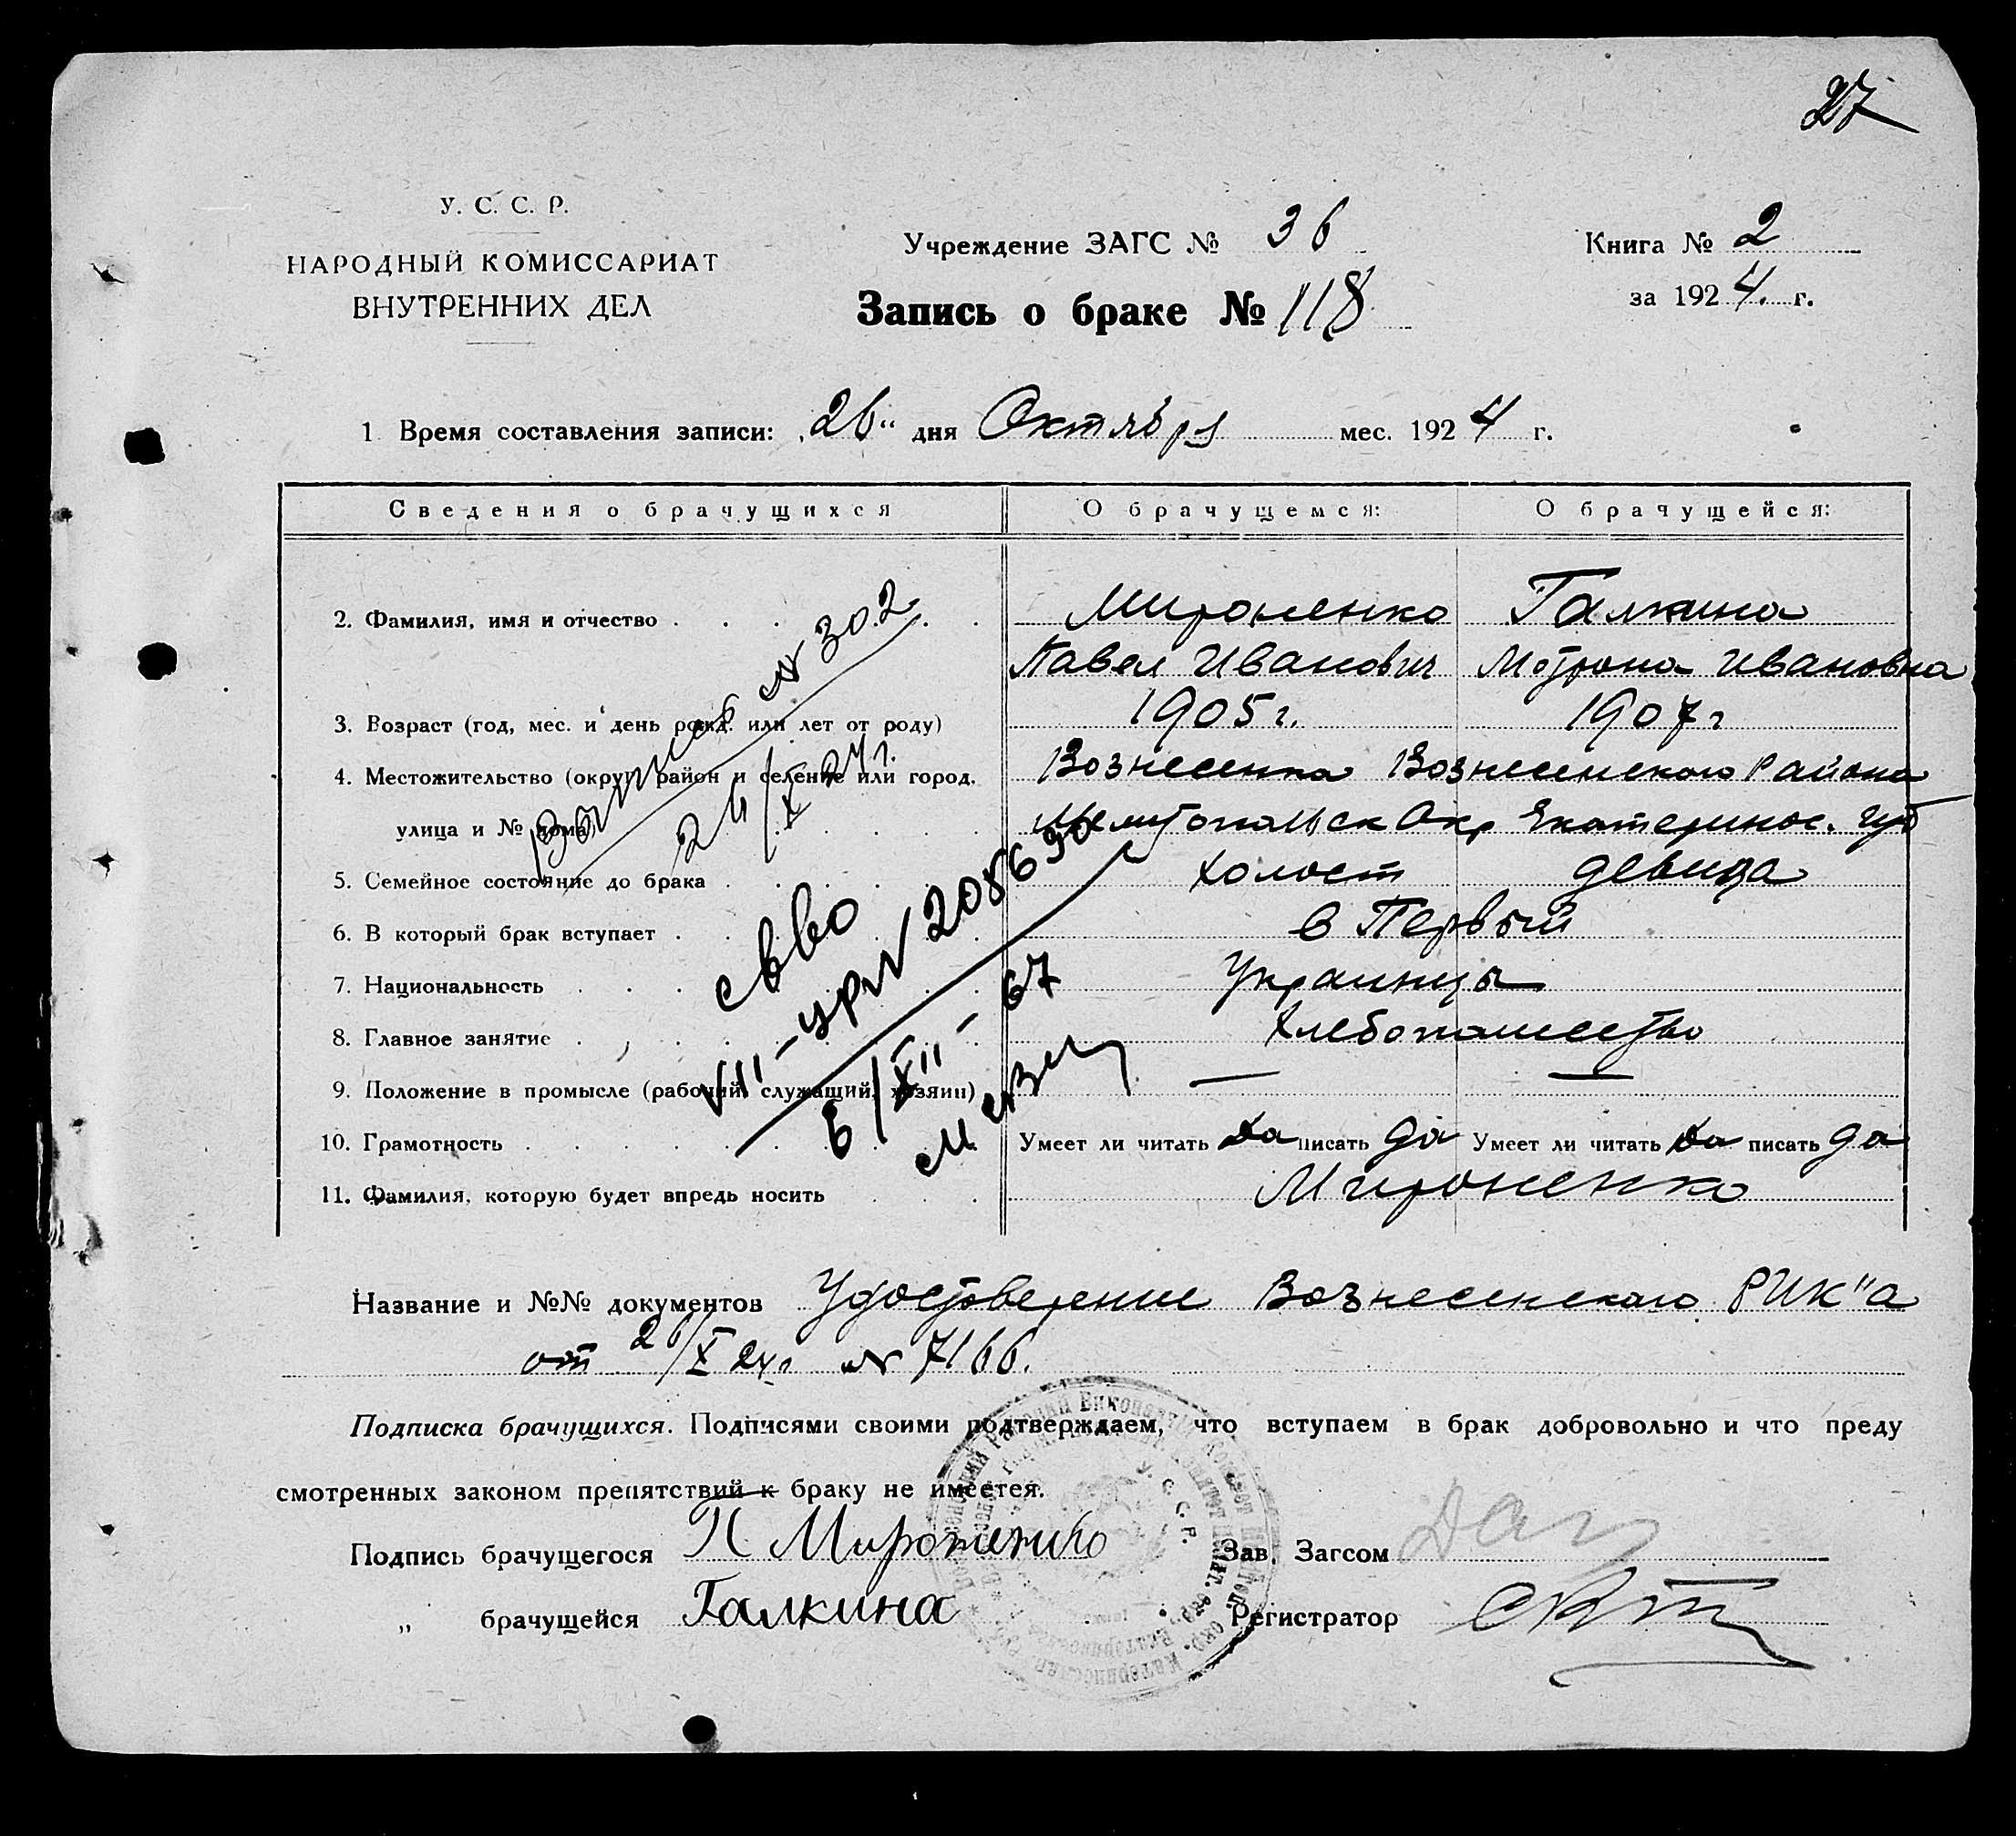 27
У. С. С. Р.
НАРОДНЫЙ КОМИССАРИАТ
ВНУТРЕННИХ ДЕЛ
Учреждение ЗАГС № 36
Книга № 2
за 1924. г.
Запись о браке № 118
1 Время составления записи: „26“ дня Октября мес. 1924 г.
Сведения о брачущихся О брачущемся: О брачущейся:
2. Фамилия, имя и отчество Мироненко Галкина
Павел Иванович Мотрона Ивановна
3. Возраст (год, мес. и день рожд. или лет от роду) 1905 г. 1907 г
4. Местожительство (округ, район и селение или город, Вознесенка Вознесенского Района
улица и № дома) Мелитопольск Окр Екатеринос. губ
5. Семейное состояние до брака холост девица
6. В который брак вступает в Первый
7. Национальность Украинцы
8. Главное занятие Хлебопашество
9. Положение в промысле (рабочий, служащий, хозяин) — —
10. Грамотность Умеет ли читать да писать да Умеет ли читать да писать да
11. Фамилия, которую будет впредь носить Мироненко
№ 302
св-во
VII-УР № 208690
6/XII-67
Название и №№ документов Удостоверение Вознесенского РИК"а
от 26/X 24г № 7166.
Подписка брачущихся. Подписями своими подтверждаем, что вступаем в брак добровольно и что преду
смотренных законом препятствий к браку не имеется.
Подпись брачущегося П Мироненко Зав. Загсом
„ брачущейся Галкина Регистратор